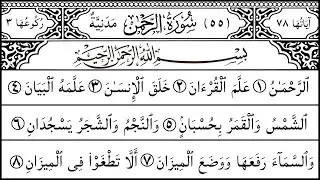 آيَاتُهَا ٧٨ (٥٥) سُورَةُ الرَّحْمٰنِ مَدَنِيَّةٌ رُكُوعُهَا ٣
بِسْمِ اللّٰهِ الرَّحْمٰنِ الرَّحِيْمِ
ٱلرَّحْمَـٰنُ ١ عَلَّمَ ٱلْقُرْءَانَ ٢ خَلَقَ ٱلْإِنسَـٰنَ ٣ عَلَّمَهُ ٱلْبَيَانَ ٤
ٱلشَّمْسُ وَٱلْقَمَرُ بِحُسْبَانٍ ٥ وَٱلنَّجْمُ وَٱلشَّجَرُ يَسْجُدَانِ ٦
وَٱلسَّمَآءَ رَفَعَهَا وَوَضَعَ ٱلْمِيزَانَ ٧ أَلَّا تَطْغَوْا۟ فِى ٱلْمِيزَانِ ٨